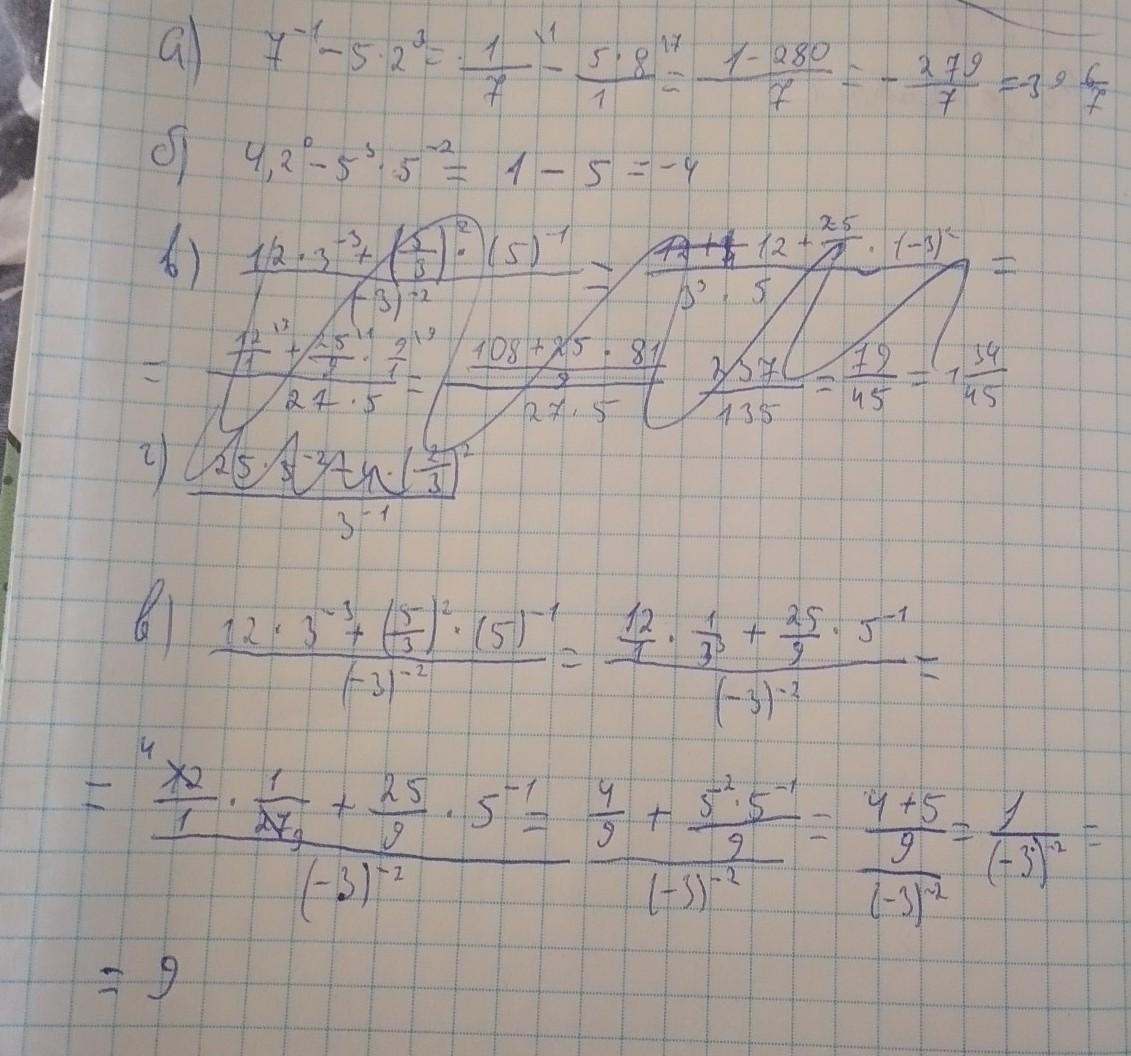 а) 7⁻¹ − 5·2³ = 1/7 \1 − 5·8/1 \7 = 1−280/7 = − 279/7 = −39 6/7
б) 4,2⁰ − 5³·5⁻² = 1 − 5 = −4
в) 12·3⁻³ + (5/3)²·(5)⁻¹ / (−3)⁻² = 12 + 25/9 · (−3)² / 3³·5 =
= 12/1 + 25/9 · 9/1 / 27·5 = 108+25·81 / 9 / 27·5 237/135 = 79/45 = 1 34/45
г) 25· (2/3)² / 3⁻¹
в) 12·3⁻³ + (5/3)²·(5)⁻¹ / (−3)⁻² = 12/1 · 1/3³ + 25/9 · 5⁻¹ / (−3)⁻² =
= 4 12/1 · 1/27 9 + 25/9 · 5⁻¹ / (−3)⁻² = 4/9 + 5²·5⁻¹/9 / (−3)⁻² = 4+5/9 / (−3)⁻² = 1/(−3)⁻² =
= 9